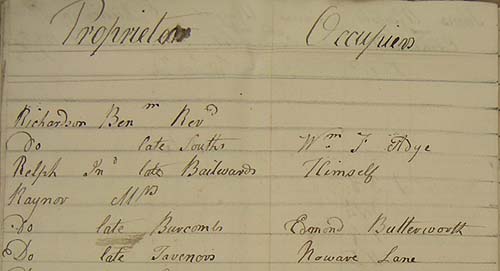 Proprietors Occupiers
Richardson Benm Revd
Do late Souths Wm F Adye
Relph Jnd late Bailwards Himself
Raynor Mrs
Do late Burcombs Edmond Butterworth
Do late Tavenors Noware Lane